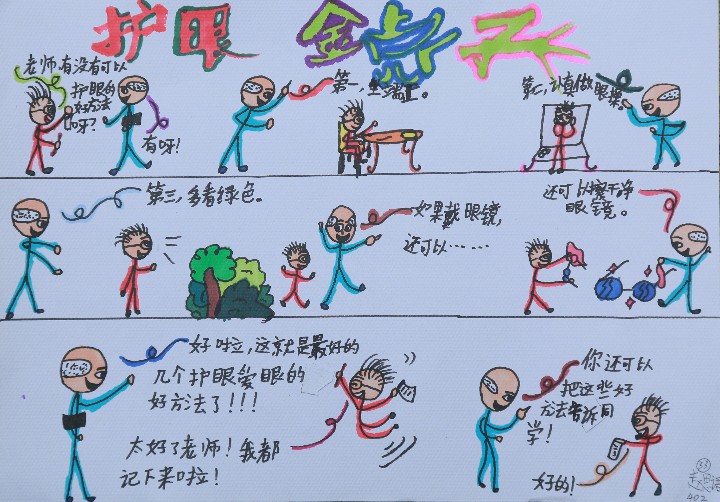 护眼 金点子
老师,有没有可以
护眼的
好方法
吗呀?
有呀!
第一,坐端正。
第二,认真做
眼操。
第三,多看绿色。
如果戴眼镜,
还可以……
还可以擦干净
眼镜。
好啦,这就是最好的
几个护眼爱眼的
好方法了!!!
太好了老师!我都
记下来啦!
你还可以
把这些好
方法告诉同
学!
好的!
402